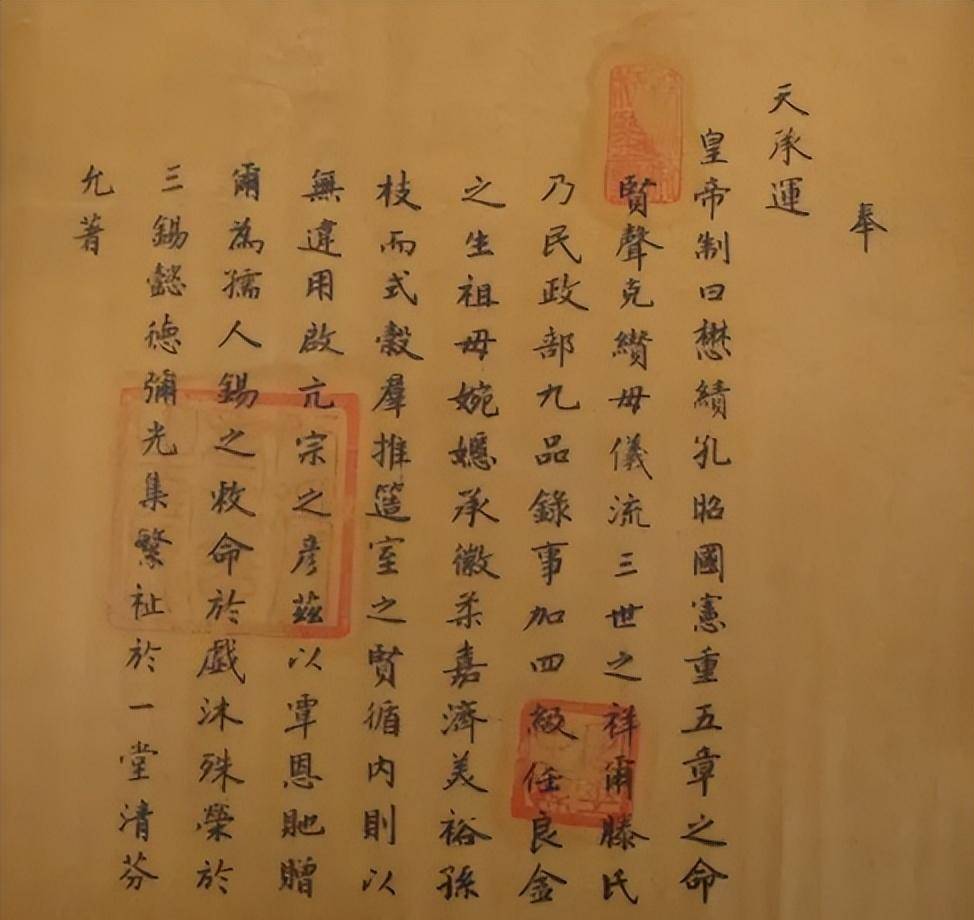 奉
天承運
皇帝制曰懋績孔昭國憲重五章之命
賢聲克纘母儀流三世之祥爾滕氏
乃民政部九品錄事加四級任良金
之生祖母婉嫕承徽柔嘉濟美裕孫
枝而式穀羣推簉室之賢循内則以
無違用啟亢宗之彦茲以覃恩貤贈
爾為孺人錫之敕命於戲沐殊榮於
三錫懿德彌光集繁祉於一堂清芬
允著